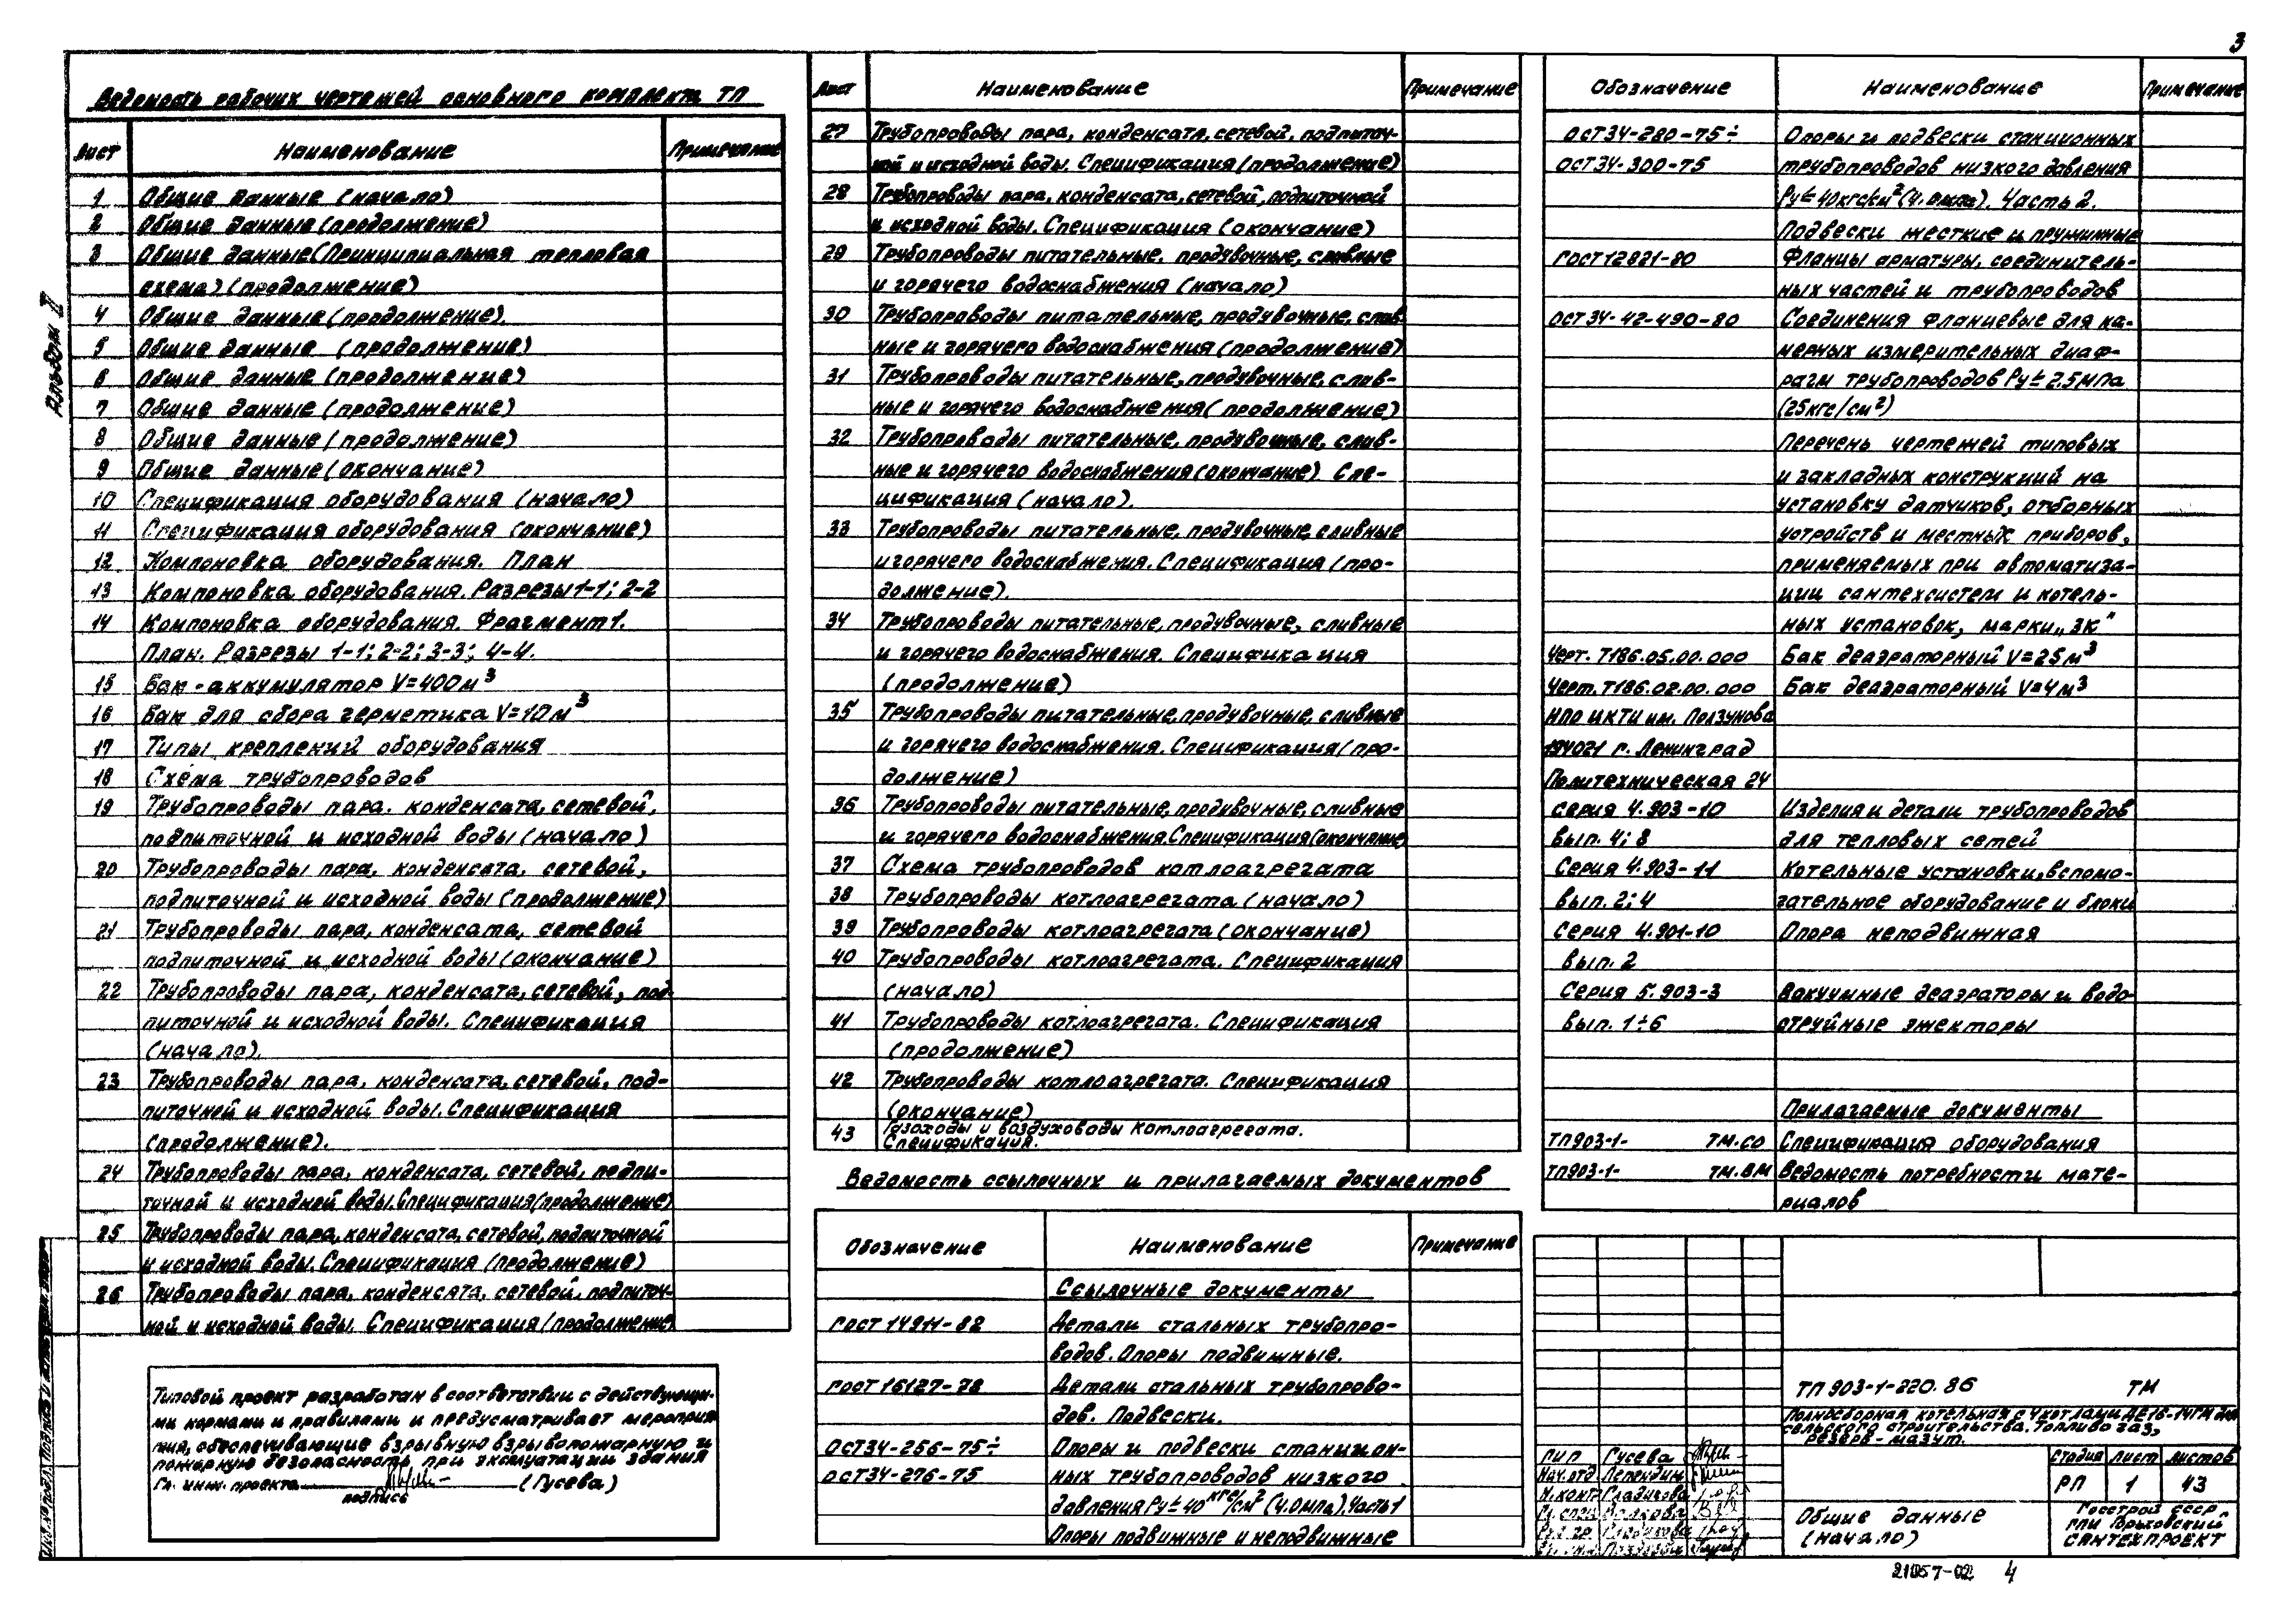 3
Альбом II
Ведомость рабочих чертежей основного комплекта ТП
Лист Наименование Примечание
1 Общие данные (начало)
2 Общие данные (продолжение)
3 Общие данные (Принципиальная тепловая
схема) (продолжение)
4 Общие данные (продолжение).
5 Общие данные (продолжение)
6 Общие данные (продолжение)
7 Общие данные (продолжение)
8 Общие данные (продолжение)
9 Общие данные (окончание)
10 Спецификация оборудования (начало)
11 Спецификация оборудования (окончание)
12 Компоновка оборудования. План
13 Компоновка оборудования. Разрезы 1-1; 2-2
14 Компоновка оборудования. Фрагмент 1.
План. Разрезы 1-1; 2-2; 3-3; 4-4.
15 Бак-аккумулятор V=400м³
16 Бак для сбора герметика V=10м³
17 Типы креплений оборудования
18 Схема трубопроводов
19 Трубопроводы пара, конденсата, сетевой,
подпиточной и исходной воды (начало)
20 Трубопроводы пара, конденсата, сетевой,
подпиточной и исходной воды (продолжение)
21 Трубопроводы пара, конденсата, сетевой
подпиточной и исходной воды (окончание)
22 Трубопроводы пара, конденсата, сетевой, под-
питочной и исходной воды. Спецификация
(начало).
23 Трубопроводы пара, конденсата, сетевой, под-
питочной и исходной воды. Спецификация
(продолжение).
24 Трубопроводы пара, конденсата, сетевой, подпи-
точной и исходной воды. Спецификация (продолжение)
25 Трубопроводы пара, конденсата, сетевой, подпиточной
и исходной воды. Спецификация (продолжение)
26 Трубопроводы пара, конденсата, сетевой, подпиточ-
ной и исходной воды. Спецификация (продолжение
Типовой проект разработан в соответствии с действующи-
ми нормами и правилами и предусматривает мероприя
тия, обеспечивающие взрывную взрывопожарную и
пожарную безопасность при эксплуатации здания
Гл. инж. проекта (Гусева)
подпись
Лист Наименование Примечание
27 Трубопроводы пара, конденсата, сетевой, подпиточ-
ной и исходной воды. Спецификация (продолжение)
28 Трубопроводы пара, конденсата, сетевой, подпиточной
и исходной воды. Спецификация (окончание)
29 Трубопроводы питательные, продувочные, сливные
и горячего водоснабжения (начало)
30 Трубопроводы питательные, продувочные, слив-
ные и горячего водоснабжения (продолжение)
31 Трубопроводы питательные, продувочные, слив-
ные и горячего водоснабжения (продолжение)
32 Трубопроводы питательные, продувочные, слив-
ные и горячего водоснабжения (окончание) Спе-
цификация (начало).
33 Трубопроводы питательные, продувочные, сливные
и горячего водоснабжения. Спецификация (про-
должение).
34 Трубопроводы питательные, продувочные, сливные
и горячего водоснабжения. Спецификация
(продолжение)
35 Трубопроводы питательные, продувочные, сливные
и горячего водоснабжения. Спецификация (про-
должение)
36 Трубопроводы питательные, продувочные, сливные
и горячего водоснабжения. Спецификация (окончание)
37 Схема трубопроводов котлоагрегата
38 Трубопроводы котлоагрегата (начало)
39 Трубопроводы котлоагрегата (окончание)
40 Трубопроводы котлоагрегата. Спецификация
(начало)
41 Трубопроводы котлоагрегата. Спецификация
(продолжение)
42 Трубопроводы котлоагрегата. Спецификация
(окончание)
43 Газоходы и воздуховоды котлоагрегата.
Спецификация.
Ведомость ссылочных и прилагаемых документов
Обозначение Наименование Примечание
Ссылочные документы
ГОСТ 14911-82 Детали стальных трубопро-
водов. Опоры подвижные.
ГОСТ 16127-78 Детали стальных трубопрово-
дов. Подвески.
ОСТ34-256-75÷ Опоры и подвески станцион-
ОСТ34-276-75 ных трубопроводов низкого
давления Ру≤40 кгс/см² (4.0мпа). Часть 1
Опоры подвижные и неподвижные
Обозначение Наименование Примечание
ОСТ34-280-75÷ Опоры и подвески станционных
ОСТ34-300-75 трубопроводов низкого давления
Ру≤40кгс/см² (4.0мпа). Часть 2.
Подвески жесткие и пружинные
ГОСТ 12821-80 Фланцы арматуры, соединитель-
ных частей и трубопроводов
ОСТ34-42-490-80 Соединения фланцевые для ка-
мерных измерительных диаф-
рагм трубопроводов Ру≤2.5мПа
(25кгс/см²)
Перечень чертежей типовых
и закладных конструкций на
установку датчиков, отборных
устройств и местных приборов,
применяемых при автоматиза-
ции сантехсистем и котель-
ных установок, марки „ЗК"
Черт. Т186.05.00.000 Бак деаэраторный V=25м³
Черт. Т186.02.00.000 Бак деаэраторный V=4м³
НПО ЦКТИ им. Ползунова
194021 г. Ленинград
Политехническая 24
Серия 4.903-10 Изделия и детали трубопроводов
вып. 4; 8 для тепловых сетей
Серия 4.903-11 Котельные установки, вспомо-
вып. 2; 4 гательное оборудование и блоки
Серия 4.901-10 Опора неподвижная
вып. 2
Серия 5.903-3 Вакуумные деаэраторы и водо-
вып. 1÷6 струйные эжекторы
Прилагаемые документы
ТП903-1- ТМ.СО Спецификация оборудования
ТП903-1- ТМ.ВМ Ведомость потребности мате-
риалов
ТП 903-1-220.86 ТМ
Полносборная котельная с 4 котлами ДЕ16-14ГМ для
сельского строительства. Топливо газ,
резерв-мазут.
ГИП Гусева
Нач.отд. Лепендин
Н.контр Гладикова
Стадия Лист Листов
РП 1 43
Общие данные
(начало)
Госстрой СССР
ГПИ Горьковский
САНТЕХПРОЕКТ
21057-02 4